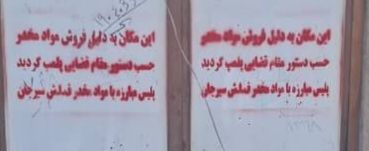 این مکان به دلیل فروش مواد مخدر
حسب دستور مقام قضایی پلمب گردید
پلیس مبارزه با مواد مخدر فماش سیرجان
این مکان به دلیل فروش مواد مخدر
حسب دستور مقام قضایی پلمپ گردید
پلیس مبارزه با مواد مخدر فماش سیرجان